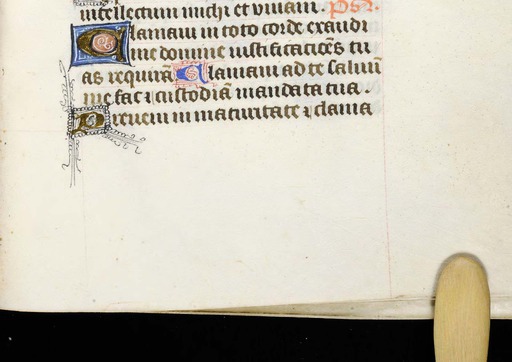 intellectum michi et vivam. Ps.
Clamavi in toto corde exaudi
me domine iustificacōes tu
as requirā Clamavi ad te salvū
me fac ⁊ custodiā mandata tua.
Preveni in maturitate ⁊ clama